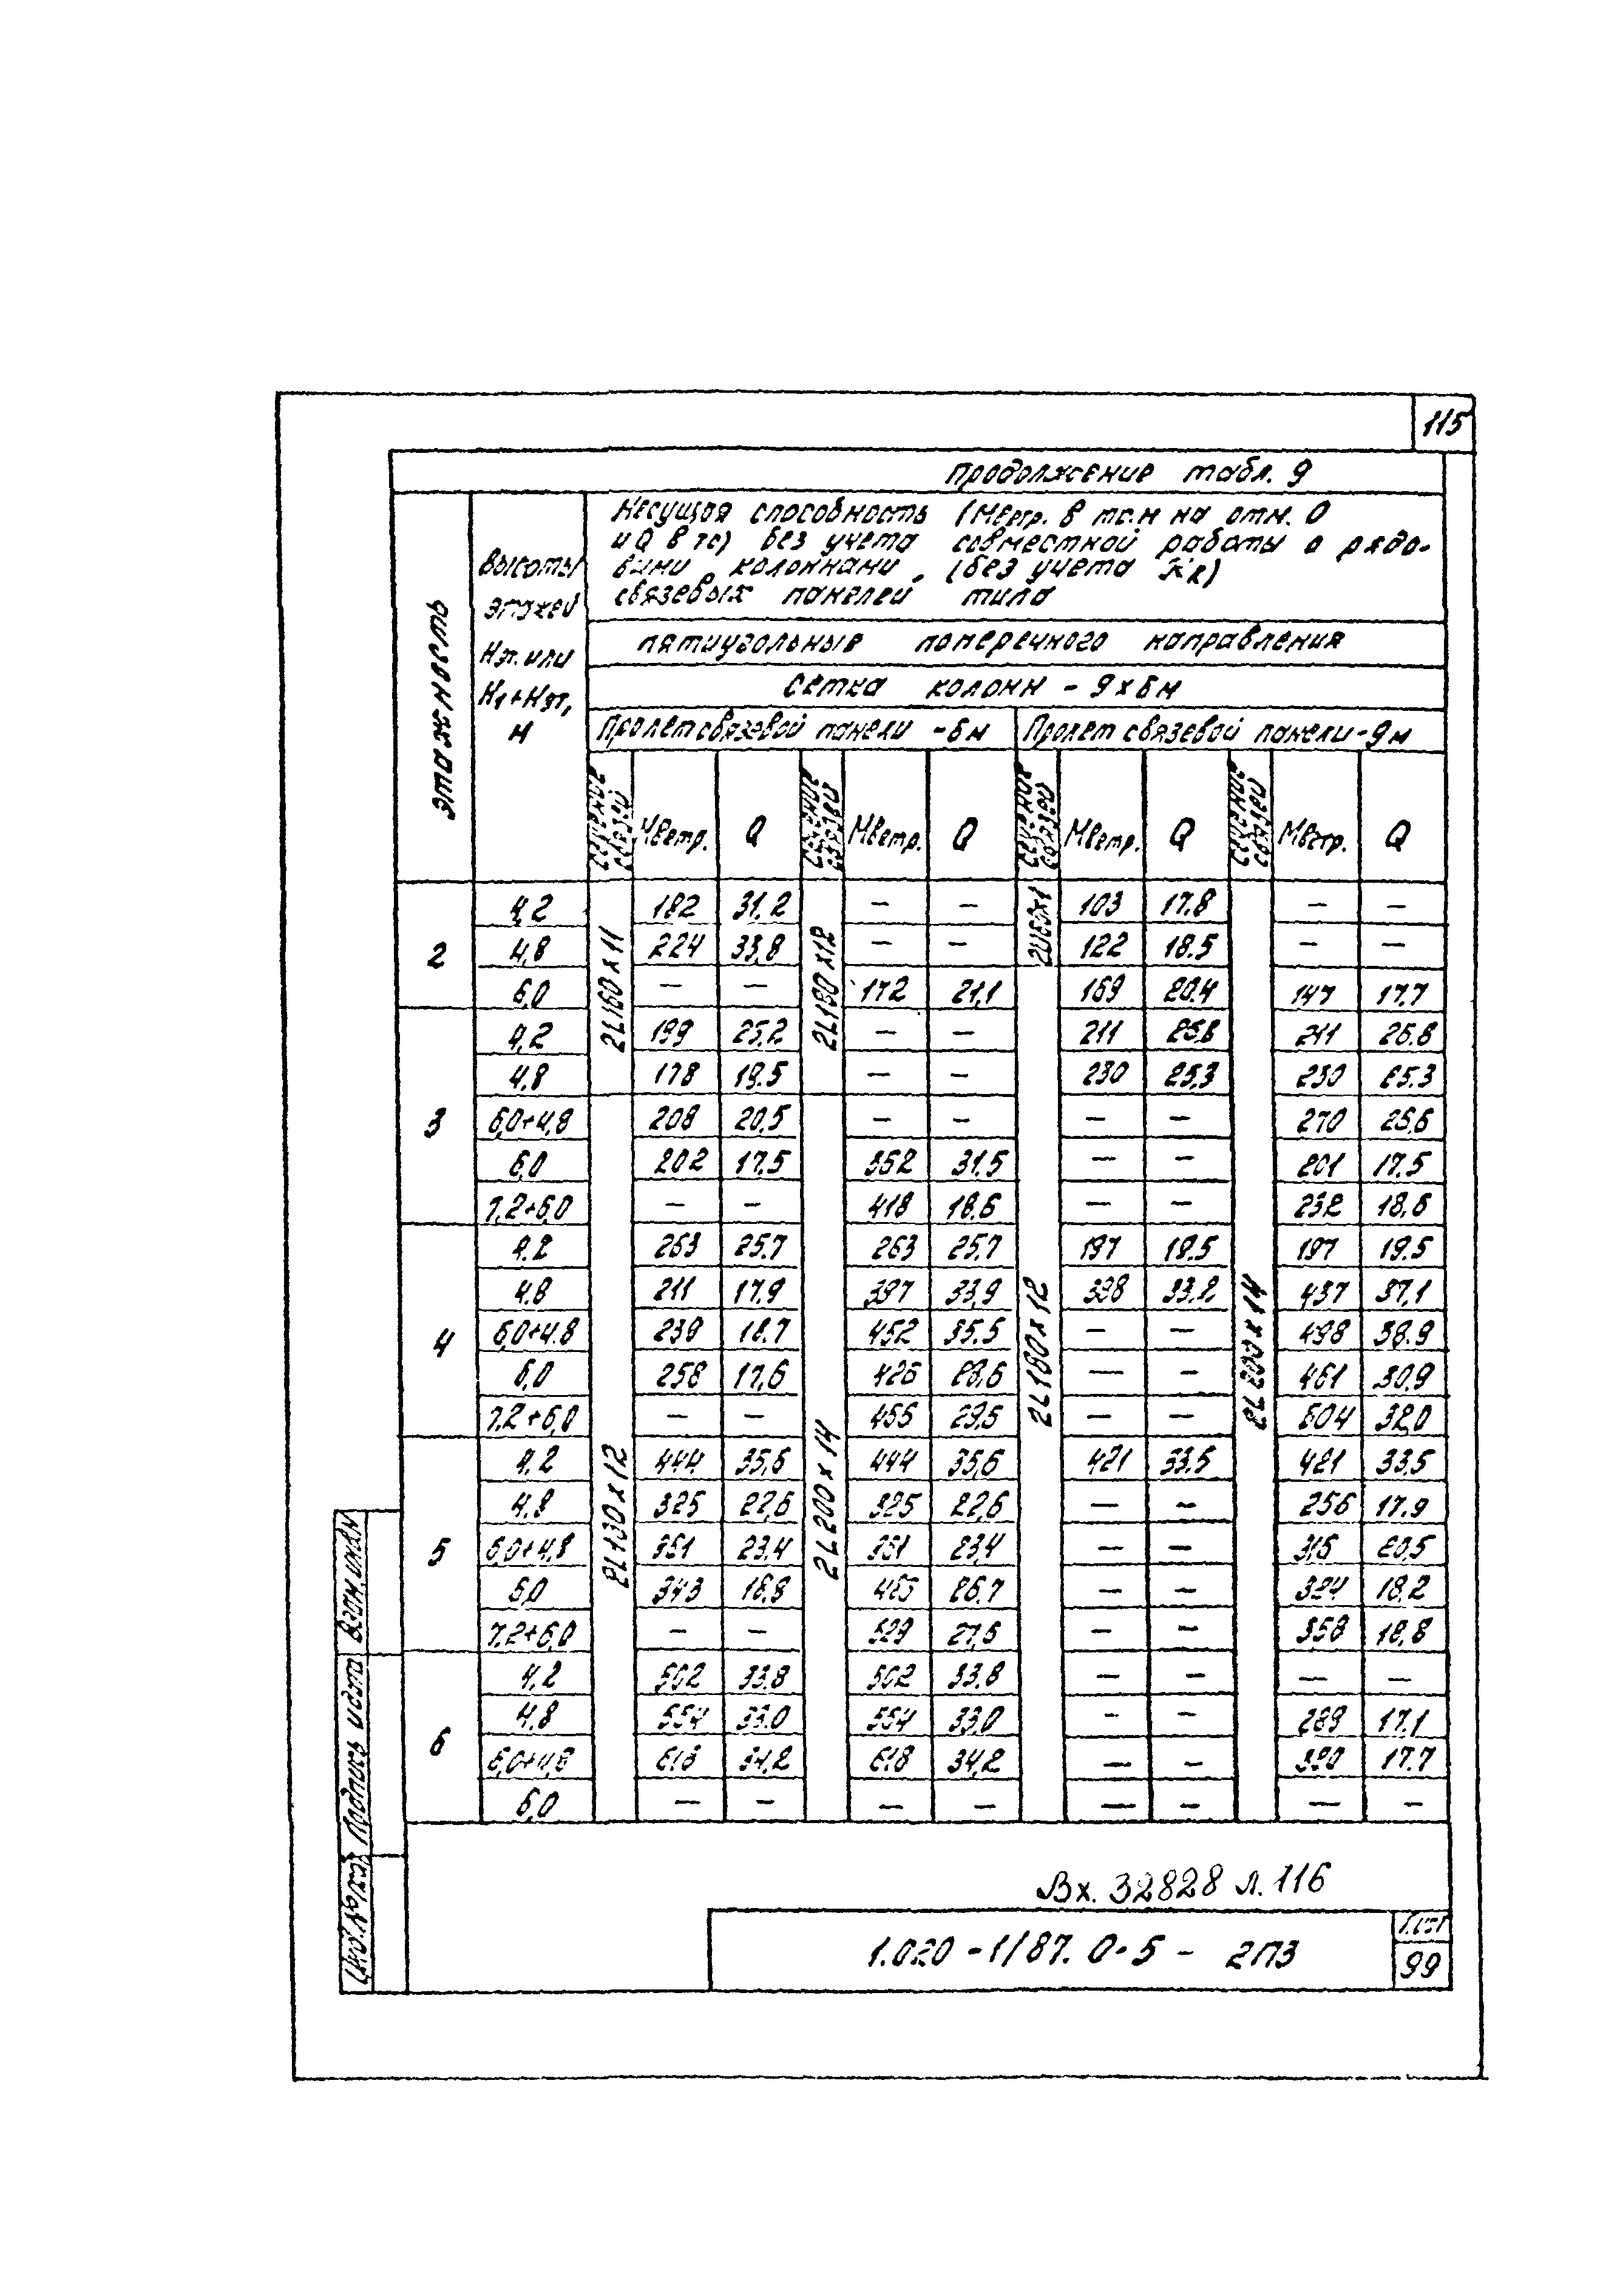 115
Продолжение табл. 9
Этажность
Высоты этажей Нэт. или Н1+Нэт, м
Несущая способность (Мветр. в тс.м на отм. 0
и Q в тс) без учета совместной работы с рядо-
выми колоннами (без учета
связевых панелей типа
пятиугольные поперечного направления
Сетка колонн - 9х6м
Пролет связевой панели - 6м Пролет связевой панели - 9м
Сечение связей Мветр. Q Сечение связей Мветр. Q Сечение связей Мветр. Q Сечение связей Мветр. Q
2L160х11 2L180х12 2L180х12 2L200х14
2L200х14
2
4,2 182 31.2 — — 103 17.8 — —
4,8 224 33,8 — — 122 18.5 — —
6,0 — — 172 21,1 169 20.4 147 17.7
3
4,2 199 25,2 — — 211 211
4,8 178 19.5 — — 230 25,3 230 25.3
6,0+4,8 208 20,5 — — — — 270 25,6
6,0 202 17,5 352 31.5 — — 201 17.5
7,2+6,0 — — 418 18.6 — — 232 18,6
4
4.2 263 25.7 263 25.7 197 19.5 197 19.5
4.8 211 17.9 397 33,9 398 33.2 437 37.1
6,0+4.8 239 18.7 452 35.5 — — 498 38.9
6,0 258 17,6 426 28,6 — — 461 30.9
7.2+6,0 — — 455 29,5 — — 504 32,0
5
4,2 444 35,6 444 35,6 421 33.5 421 33,5
4.8 325 22,6 325 22,6 — — 256 17.9
6,0+4,8 351 23.4 351 23,4 — — 315 20,5
6,0 343 18,9 26.7 — — 324 18.2
7,2+6,0 — — 529 27,5 — — 358 18,8
6
4,2 502 33.8 502 33.8 — — — —
4,8 554 33.0 554 33,0 — — 289 17.1
6,0+4,8 618 34,2 618 34,2 — — 320 17.7
6,0 — — — — — — — —
Взам.инв.№
Подпись и дата
Инв.№ подл.
Вх. 32828 л. 116
1.020 - 1/87. 0-5 - 2ПЗ
Лист
99